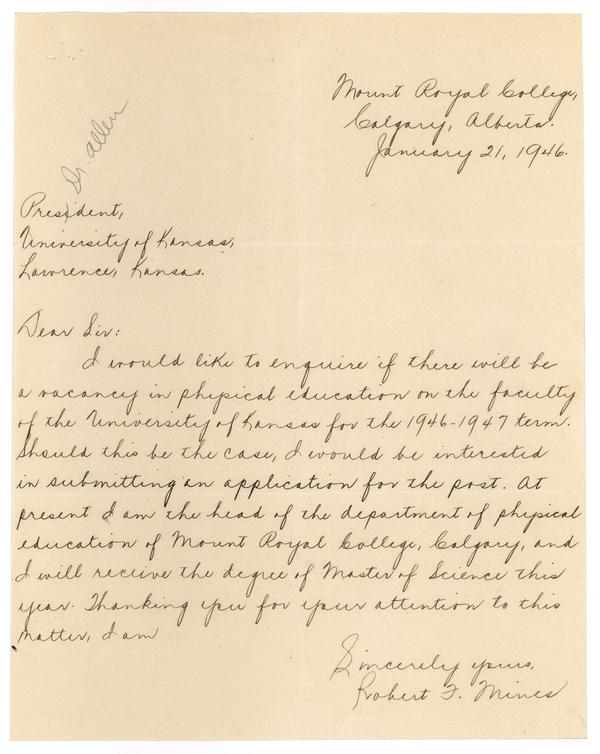 Mount Royal College,
Calgary, Alberta.
January 21, 1946.
Dr. Allen
President,
University of Kansas,
Lawrence, Kansas.
Dear Sir:
I would like to enquire if there will be
a vacancy in physical education on the faculty
of the University of Kansas for the 1946-1947 term.
Should this be the case, I would be interested
in submitting an application for the post. At
present I am the head of the department of physical
education of Mount Royal College, Calgary, and
I will recieve the degree of Master of Science this
year. Thanking you for your attention to this
matter, I am
Sincerely yours,
Robert F. Mines